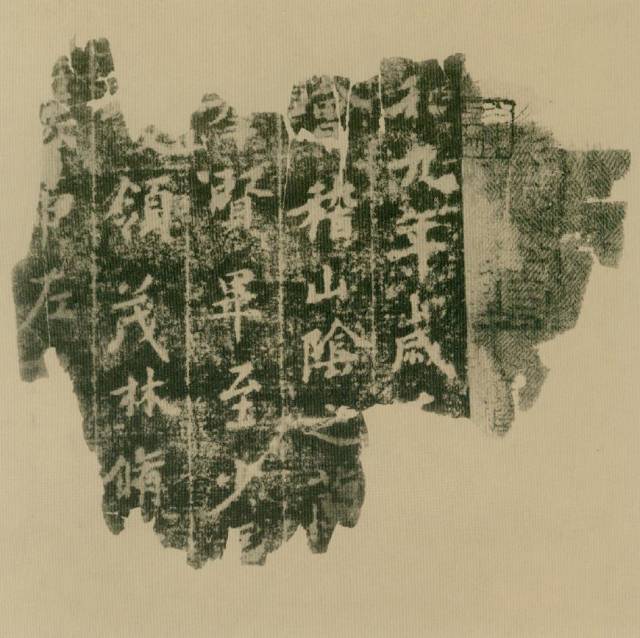 和九年歲
會稽山陰之
賢畢至少
領茂林脩
帶左